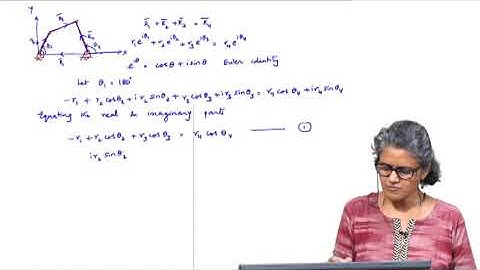 Y
R̄₃
R̄₂
R̄₄
R̄₁
x
R̄₁ + R̄₂ + R̄₃ = R̄₄
r₁e^{iθ₁} + r₂e^{iθ₂} + r₃e^{iθ₃} = r₄e^{iθ₄}
e^{iθ} = cosθ + i sinθ Euler identity
Let θ₁ = 180°
-r₁ + r₂ cosθ₂ + i r₂ sinθ₂ + r₃ cosθ₃ + i r₃ sinθ₃ = r₄ cosθ₄ + i r₄ sinθ₄
Equating the real & imaginary parts
-r₁ + r₂ cosθ₂ + r₃ cosθ₃ = r₄ cosθ₄ —— ①
i r₂ sinθ₂